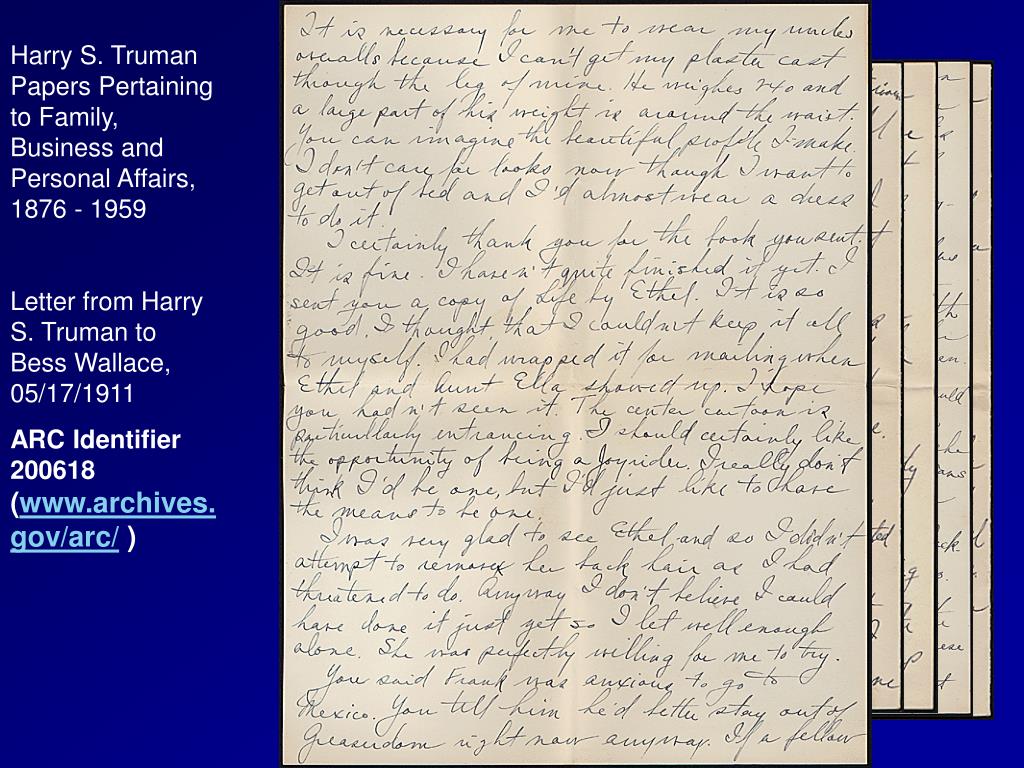 Harry S. Truman
Papers Pertaining
to Family,
Business and
Personal Affairs,
1876 - 1959
Letter from Harry
S. Truman to
Bess Wallace,
05/17/1911
ARC Identifier
200618
(www.archives.
gov/arc/ )
It is necessary for me to wear my uncles
overalls because I can't get my plaster cast
through the leg of mine. He weighs 240 and
a large part of his weight is around the waist.
You can imagine the beautiful profile I make.
I don't care for looks now though I want to
get out of bed and I'd almost wear a dress
to do it.
I certainly thank you for the book you sent.
It is fine. I haven't quite finished it yet. I
sent you a copy of Life by Ethel. It is so
good I thought that I couldn't keep it all
to myself. I had wrapped it for mailing when
Ethel and Aunt Ella showed up. I hope
you hadn't seen it. The center cartoon is
particularly entrancing. I should certainly like
the opportunity of being a Joyrider. I really don't
think I'd be one, but I'd just like to have
the means to be one.
I was very glad to see Ethel and so I didn't
attempt to remove her back hair as I had
threatened to do. Anyway I don't believe I could
have done it just yet so I let well enough
alone. She was perfectly willing for me to try.
You said Frank was anxious to go to
Mexico. You tell him he'd better stay out of
Greaserdom right now anyway. If a fellow